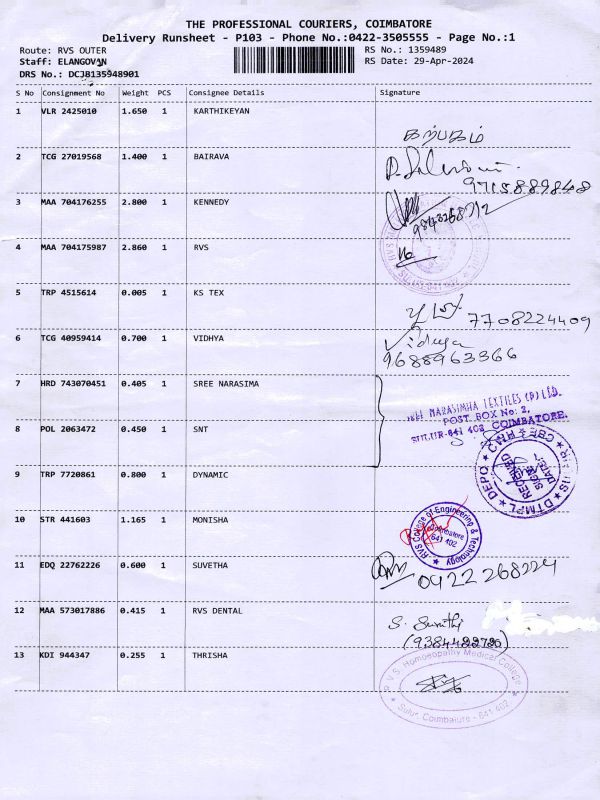 THE PROFESSIONAL COURIERS, COIMBATORE
Delivery Runsheet - P103 - Phone No.:0422-3505555 - Page No.:1
Route: RVS OUTER
RS No.: 1359489
Staff: ELANGOVAN
RS Date: 29-Apr-2024
DRS No.: DCJB135948901
S No Consignment No Weight PCS Consignee Details Signature
1 VLR 2425010 1.650 1 KARTHIKEYAN
கற்பகம்
2 TCG 27019568 1.400 1 BAIRAVA
9715889848
3 MAA 704176255 2.800 1 KENNEDY
4 MAA 704175987 2.860 1 RVS
SULUR-641 402
5 TRP 4515614 0.005 1 KS TEX
7708224409
6 TCG 40959414 0.700 1 VIDHYA
Vidhya
9688963366
7 HRD 743070451 0.405 1 SREE NARASIMA
SREE NARASIMHA TEXTILES (P) LTD.
POST. BOX No: 2,
SULUR-641 402 COIMBATORE.
8 POL 2063472 0.450 1 SNT
9 TRP 7720861 0.800 1 DYNAMIC
DTMPL ★ DEPO ★
RECEIVED
SIGN
DATE
10 STR 441603 1.165 1 MONISHA
RVS College of Engineering & Technology
Coimbatore
641 402
11 EDQ 22762226 0.600 1 SUVETHA
12 MAA 573017886 0.415 1 RVS DENTAL
13 KDI 944347 0.255 1 THRISHA
R.V.S. Homoeopathy Medical College
★ Sulur, Coimbatore - 641 402 ★